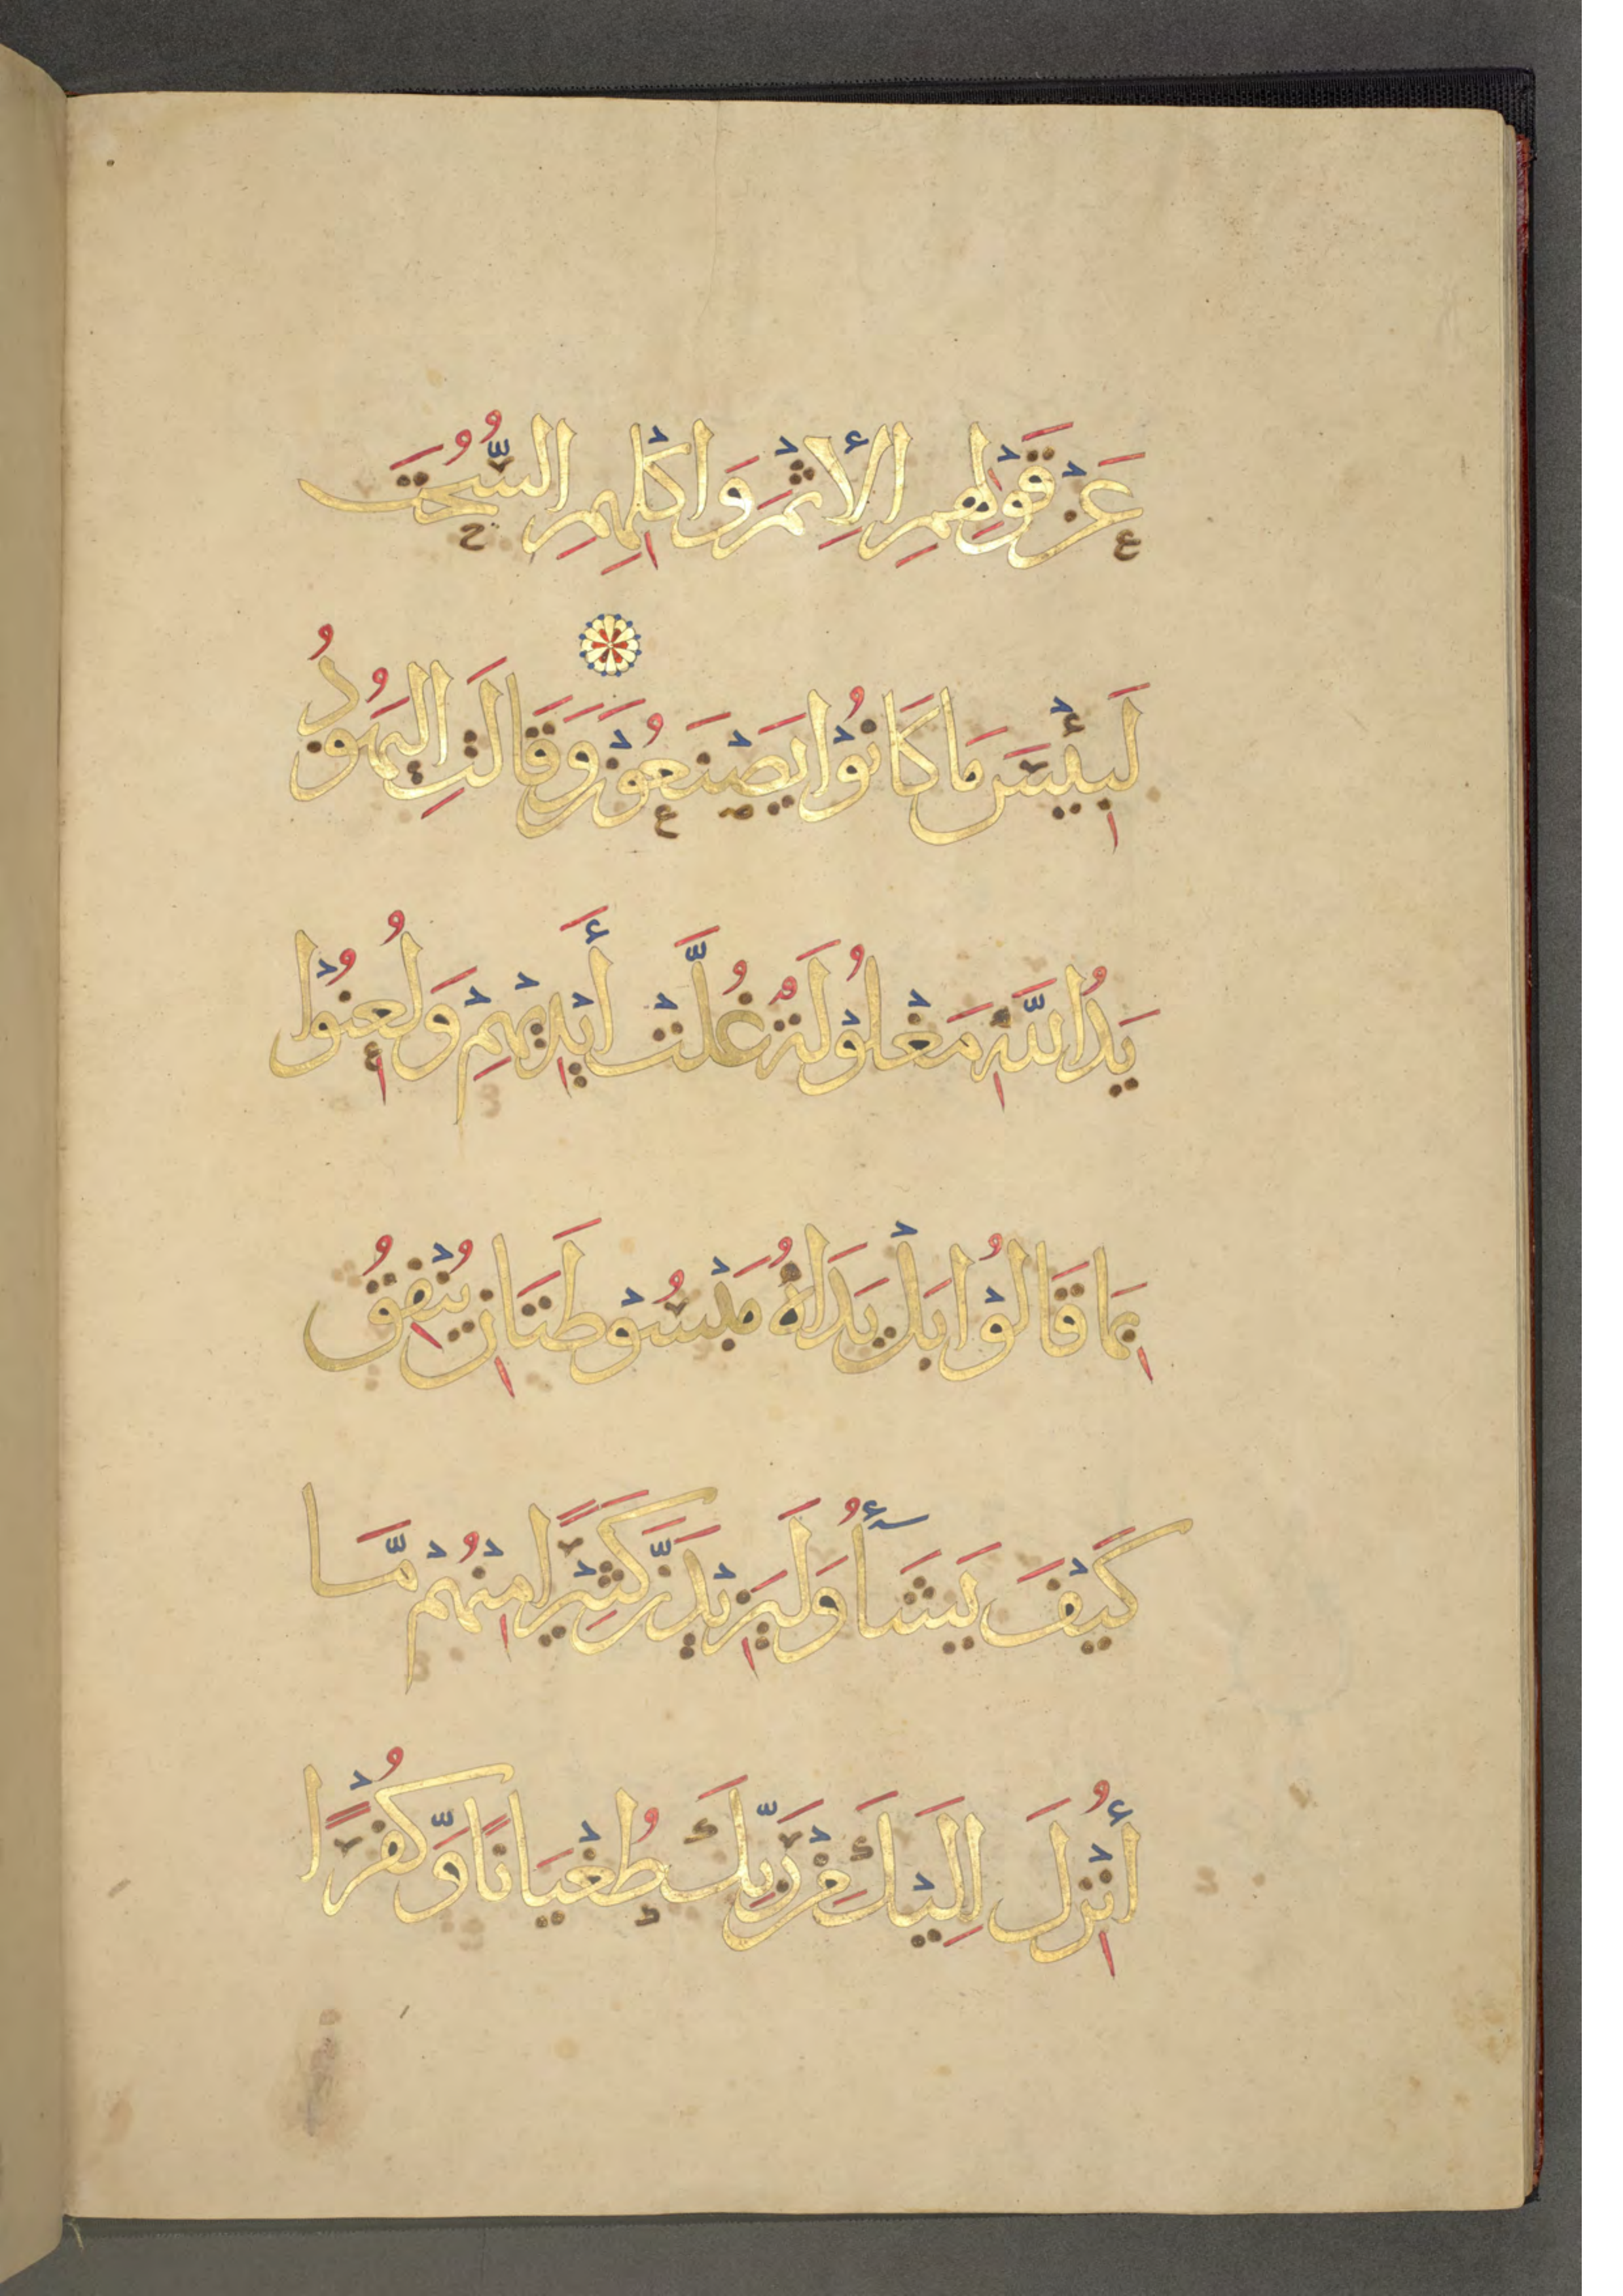 عَنْ قَوْلِهِمِ الْإِثْمَ وَاَكْلِهِمِ السُّحْتَ
لَبِئْسَ مَا كَانُوْا يَصْنَعُوْنَ وَقَالَتِ الْيَهُوْدُ
يَدُ اللَّهِ مَغْلُوْلَةٌ غُلَّتْ أَيْدِيْهِمْ وَلُعِنُوْا
بِمَا قَالُوْا بَلْ يَدَاهُ مَبْسُوْطَتَانِ يُنْفِقُ
كَيْفَ يَشَآءُ وَلَيَزِيْدَنَّ كَثِيْرًا مِنْهُمْ مَّا
أُنْزِلَ اِلَيْكَ مِنْ رَبِّكَ طُغْيَانًا وَّكُفْرًا